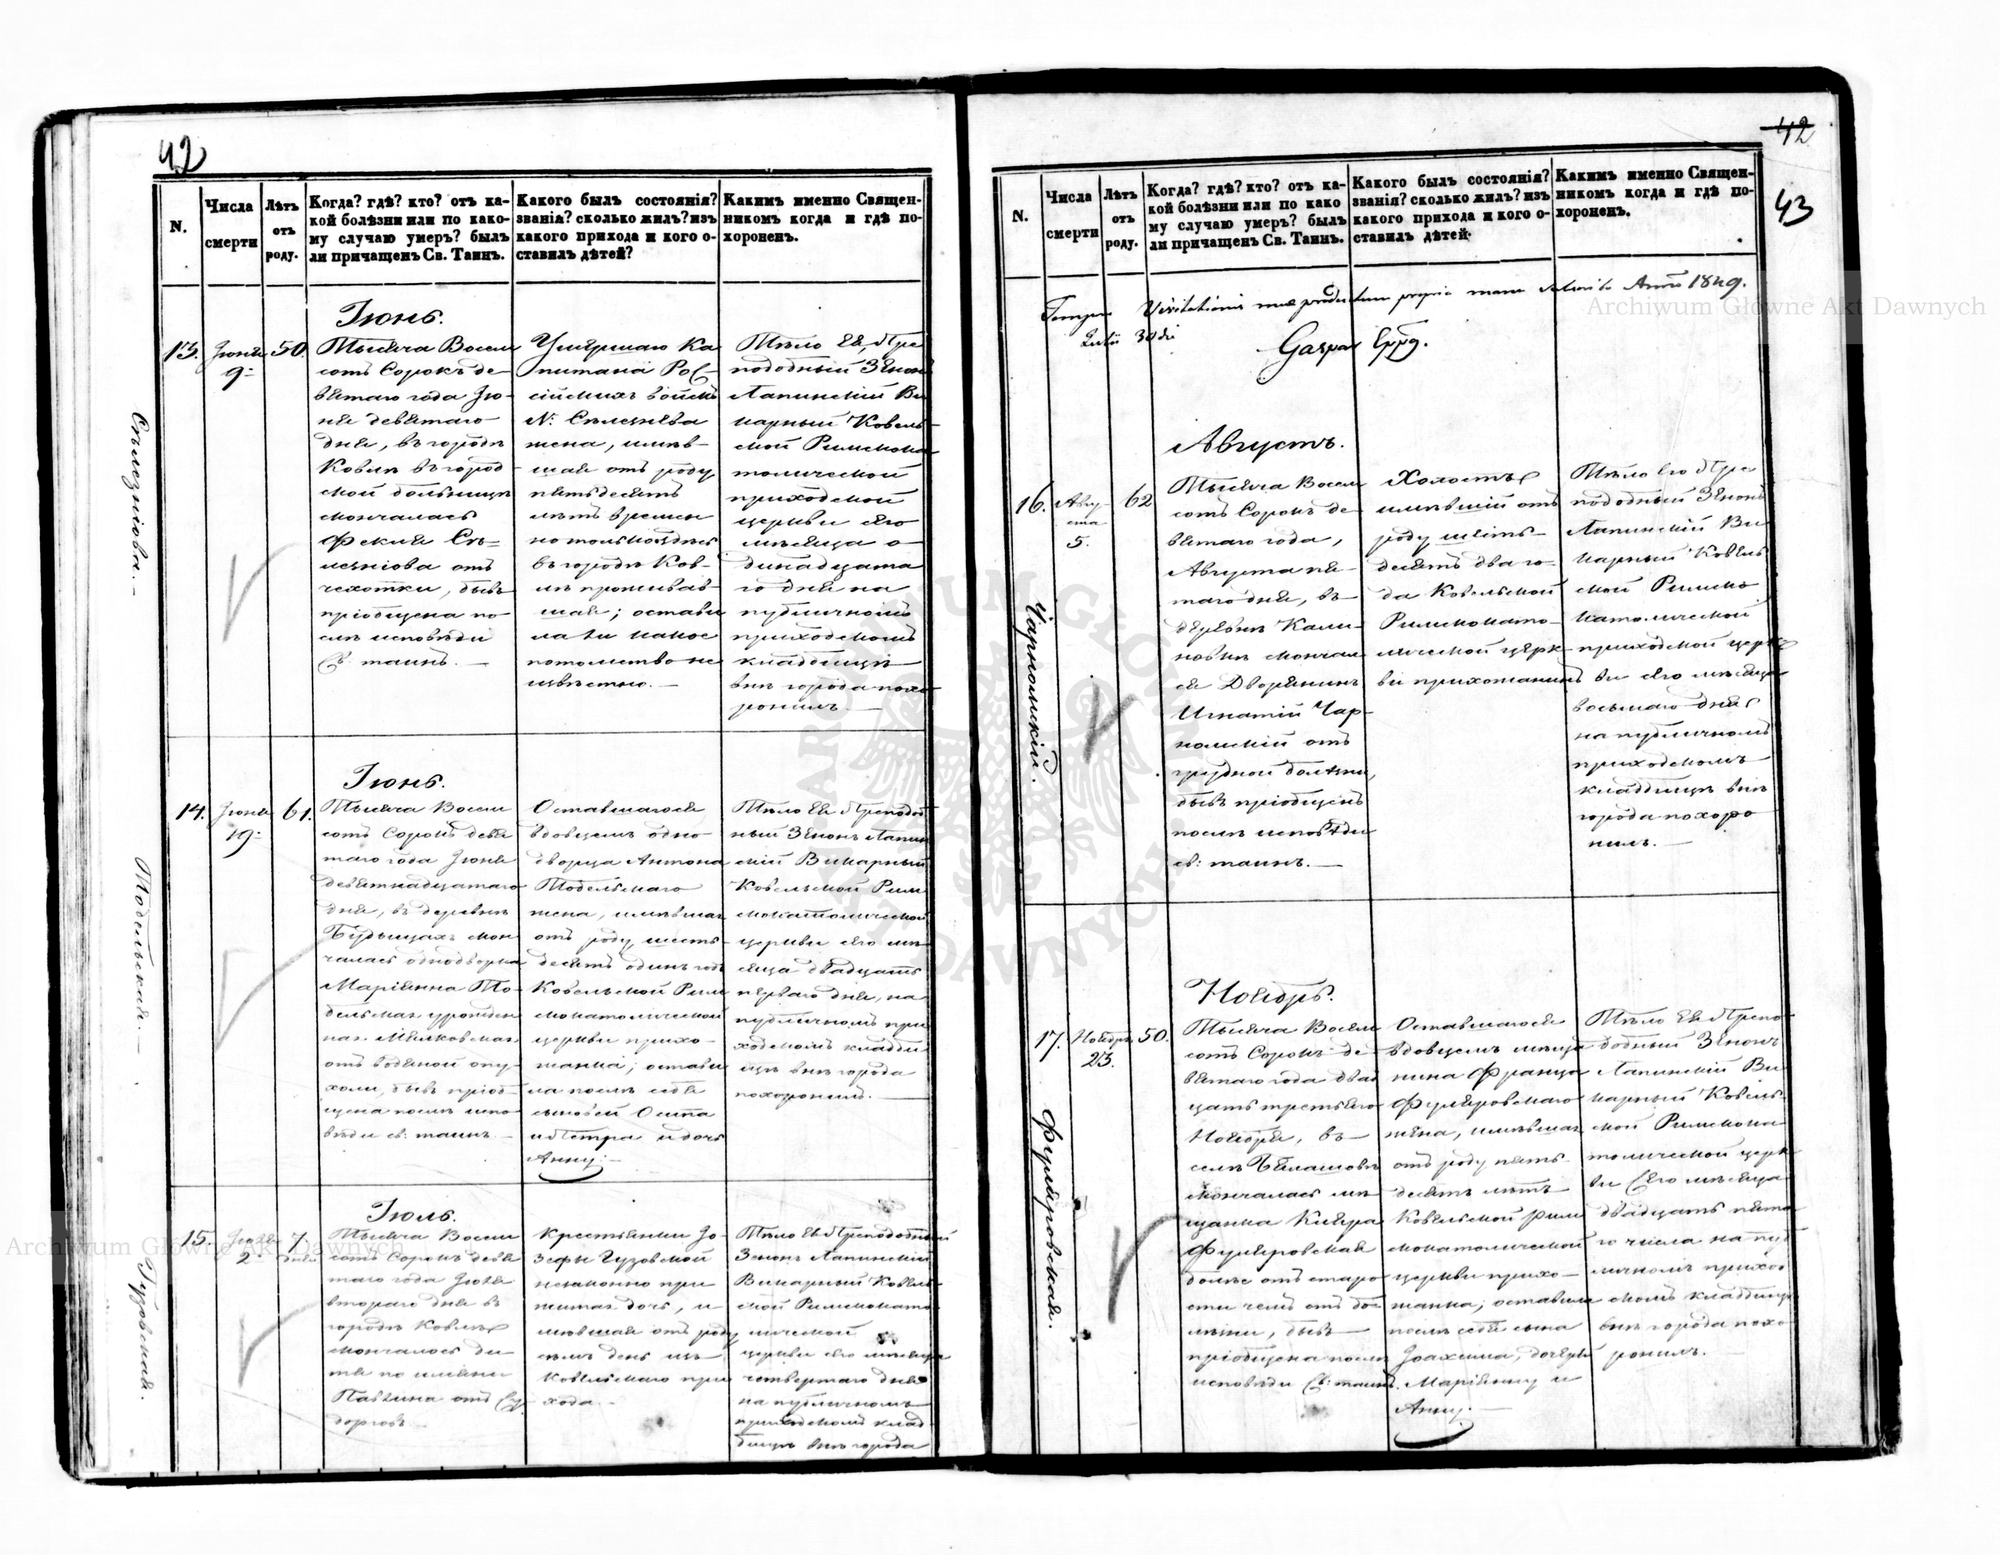 42
N.
Числа смерти
Лѣтъ отъ роду.
Когда? гдѣ? кто? отъ ка-
кой болѣзни или по како-
му случаю умеръ? былъ
ли причащенъ Св. Таинъ.
Какого былъ состоянія?
званія? сколько жилъ? изъ
какого прихода и кого о-
ставилъ дѣтей?
Каким именно Священ-
никомъ когда и гдѣ по-
хороненъ.
Сѣлезніова.
13.
Іюня
9
50.
Іюнь.
Тысяча Восем
сотъ Сорокъ де-
вятаго года Iю-
ня девятаго
дня, въ городѣ
Ковлѣ въ город-
ской больницѣ
скончалась
Сѣ-
лезніова отъ
чехотки, бывъ
пріобщена по-
слѣ исповѣди
Св. таинъ.
Умершаго Ка
питана Рос-
сійскихъ войскъ
N. Сѣлезнева
жена, имѣв-
шая отъ роду
пятьдесятъ
лѣтъ времен
но только здѣсь
въ городѣ Ков-
лѣ проживав-
шая; остави
ла ли какое
потомство не
извѣстно.
Тѣло Ея, Пре
подобный Зенонъ
Лапинскій Ви
карный Ковель-
ской Римскока
толической
приходской
церкви сего
мѣсяца о-
динадцата
го дня на
публичномъ
приходскомъ
кладбищѣ
внѣ города похо
ронилъ.
Тобельская.
14.
Іюня
19
61.
Іюнь.
Тысяча Восем
сотъ Сорокъ девя
таго года Іюня
девятнадцатаго
дня, въ деревнѣ
Будищахъ скон
чалась однодворка
Маріянна То-
бельская урожден
ная
отъ водяной опу-
холи, бывъ пріоб-
щена послѣ испо
вѣди св: таинъ.
Оставшагося
вдовцемъ одно-
дворца Антона
Тобельскаго
жена, имѣвшая
отъ роду шесть-
десятъ одинъ годъ
Ковельской Рим
скокатолической
церкви прихо-
жанка; остави
ла послѣ себя
сыновей Осипа
и Петра и дочь
Анну.
Тѣло Ея Преподоб
ный Зенонъ Лапин
скій Викарный
Ковельской Рим
скокатолической
церкви сего мѣ-
сяца двадцать
перваго дня, на
публичномъ при
ходскомъ кладби
щѣ внѣ города
похоронилъ.
Гузовская.
15.
Іюля
2
7
дней
Іюль.
Тысяча Восем
сотъ Сорокъ девя
таго года Іюля
втораго дня въ
городѣ Ковлѣ
скончалось ди
тя по имени
Павлина отъ су
дорговъ.
Крестьянки Іо-
зефы Гузовской
незаконно при
житая дочь, и
мѣвшая отъ роду
семь день изъ
Ковельскаго при
хода.
Тѣло Ея Преподобный
Зенонъ Лапинскій
Викарный Ковель-
ской Римскокато-
лической
церкви сего мѣсяца
четвертаго дня
на публичномъ
приходскомъ клад
бищѣ внѣ города
42
43
N.
Числа смерти
Лѣтъ отъ роду.
Когда? гдѣ? кто? отъ ка-
кой болѣзни или по како
му случаю умеръ? былъ
ли причащенъ Св. Таинъ.
Какого былъ состоянія?
званія? сколько жилъ? изъ
какого прихода и кого о-
ставилъ дѣтей.
Какимъ именно Священ-
никомъ когда и гдѣ по-
хороненъ.
Visitationis propria manu Anno 1849.
Julii 30 die
Gaspar
Чарномскій.
16.
Авгу-
ста
5.
62
Августъ.
Тысяча Восем
сотъ Сорокъ де-
вятаго года,
Августа пя-
таго дня, въ
деревнѣ Кали-
новкѣ сконча
ся Дворянинъ
Игнатій Чар-
номскій отъ
грудной болѣзни,
бывъ пріобщенъ
послѣ исповѣди
св: таинъ.
Холостъ
имѣвшій отъ
роду шесть-
десятъ два го-
да Ковельской
Римскокато-
лической церк-
ви прихожанинъ
Тѣло Его Пре
подобный Зенонъ
Лапинскій Ви
карный Ковель
ской Римско
католической
приходской церк
ви сего мѣсяца
восьмаго дня
на публичномъ
приходскомъ
кладбищѣ внѣ
города похоро
нилъ.
17.
Ноября
23.
50.
Ноябрь.
Тысяча Восем
сотъ Сорокъ де-
вятаго года двад
цать третьяго
Ноября, въ
селѣ Белашовѣ
скончалась мѣ
щанка Клара
болѣе отъ старо
сти чемъ отъ бо
лѣзни, бывъ
пріобщена послѣ
исповѣди Св: таинъ.
Оставшагося
вдовцемъ мѣща
нина Франца
жена, имѣвшая
отъ роду пять-
десятъ лѣтъ
Ковельской Рим
скокатолической
церкви прихо-
жанка; оставила
послѣ себя сына
Іоахима, дочерей
Маріянну и
Анну.
Тѣло Ея Препо-
добный Зенонъ
Лапинскій Ви
карный Ковель-
ской Римскока
толической церк
ви сего мѣсяца
двадцать пята
го числа на пуб
личномъ приход
скомъ кладбищѣ
внѣ города похо
ронилъ.
Archiwum Główne Akt Dawnych
Archiwum Główne Akt Dawnych
ARCHIWUM GŁÓWNE AKT DAWNYCH